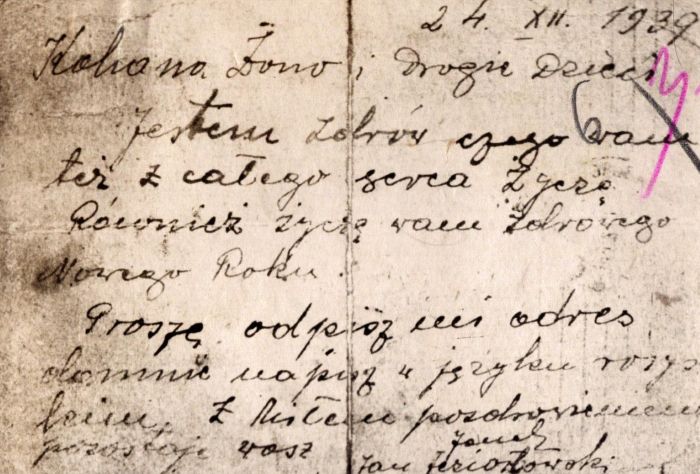 24. XII. 1939
Kohana Żono i Drogie Dzieci
Jestem zdrów czego wam
też z całego serca Życzę
Również życzę wam Zdrowego
Nowego Roku.
Proszę odpisz mi adres
domnie napisz w języku rosys
kim, Z miłem pozdrowieniem
pozostaję wasz Janek
Jan